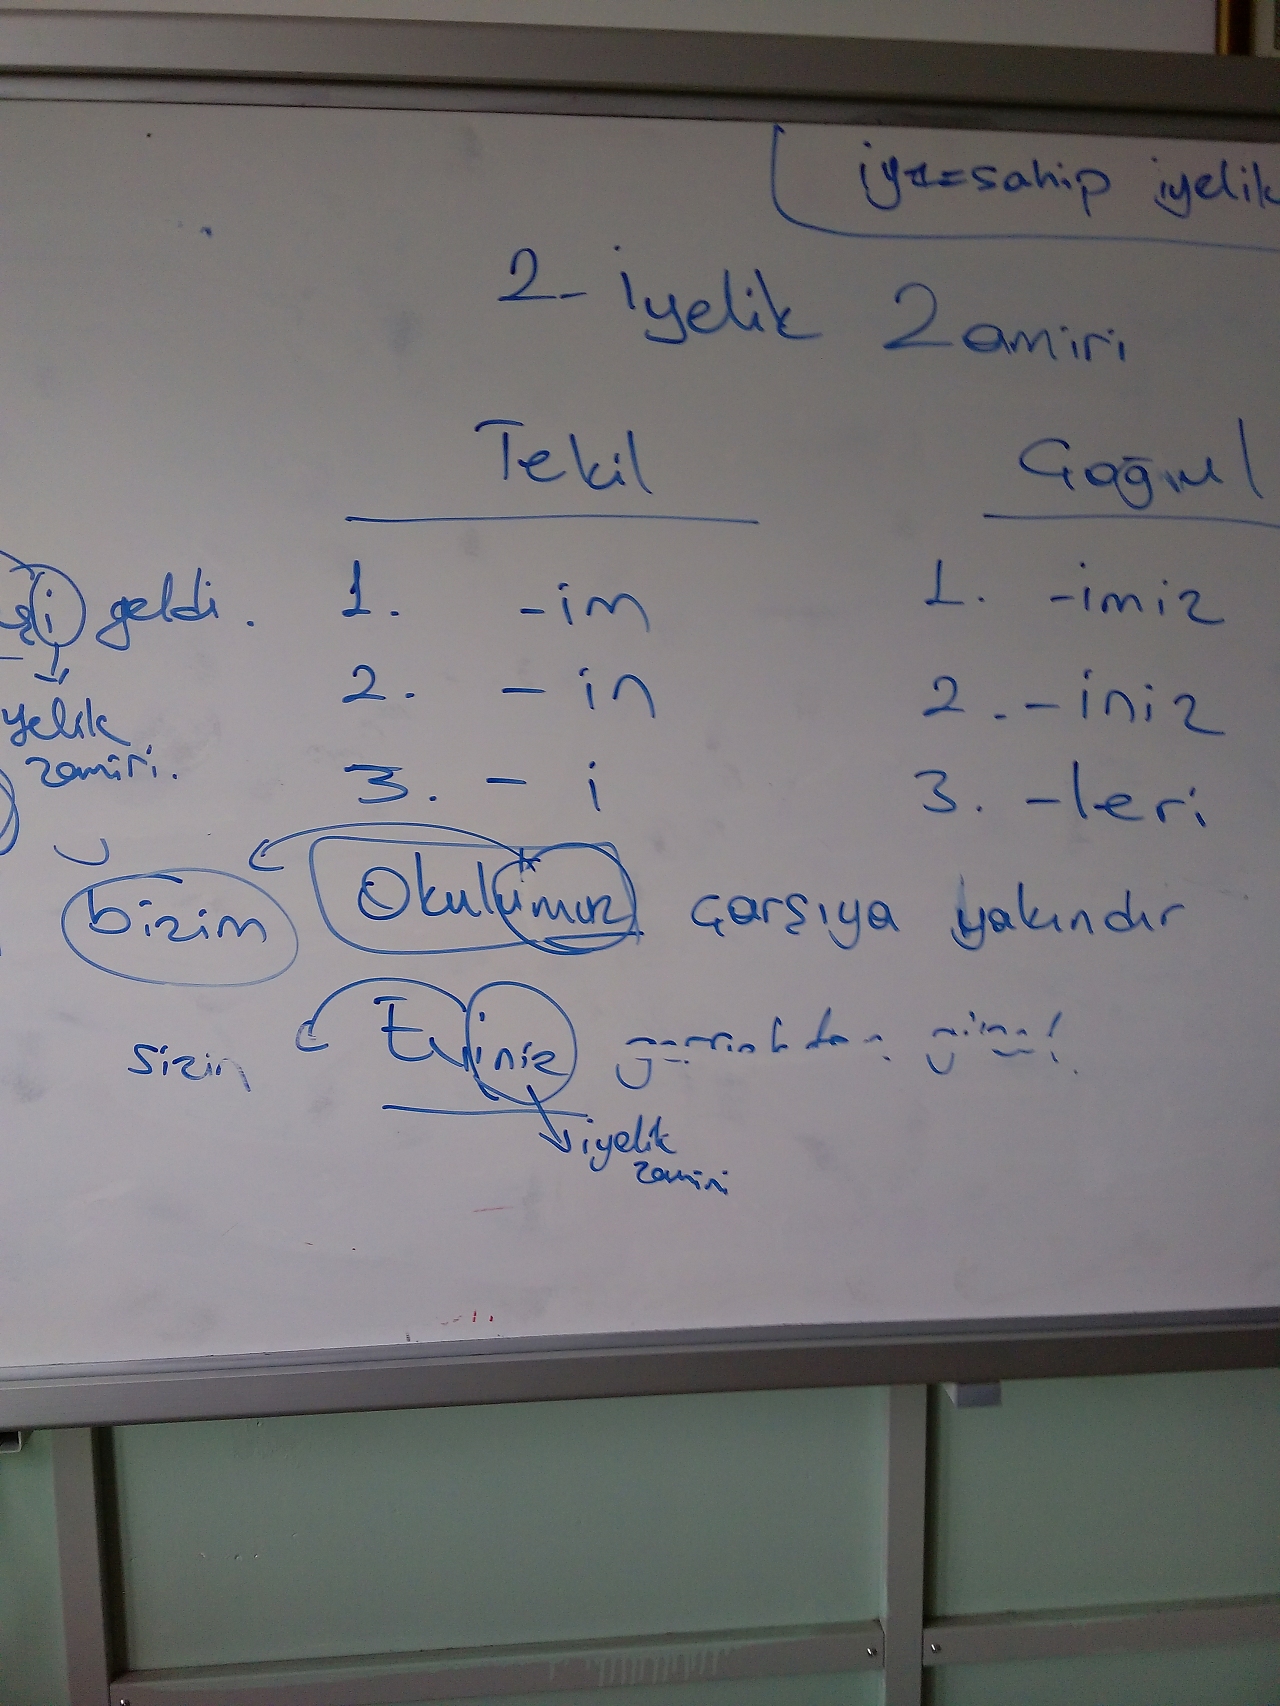 iye=sahip iyelik
2- iyelik Zamiri
Tekil Çoğul
geldi. 1. -im 1. -imiz
2. - in 2. - iniz
yelik
zamiri.
3. - i 3. -leri
bizim Okulumuz çarşıya yakındır
sizin Eviniz
iyelik
zamiri